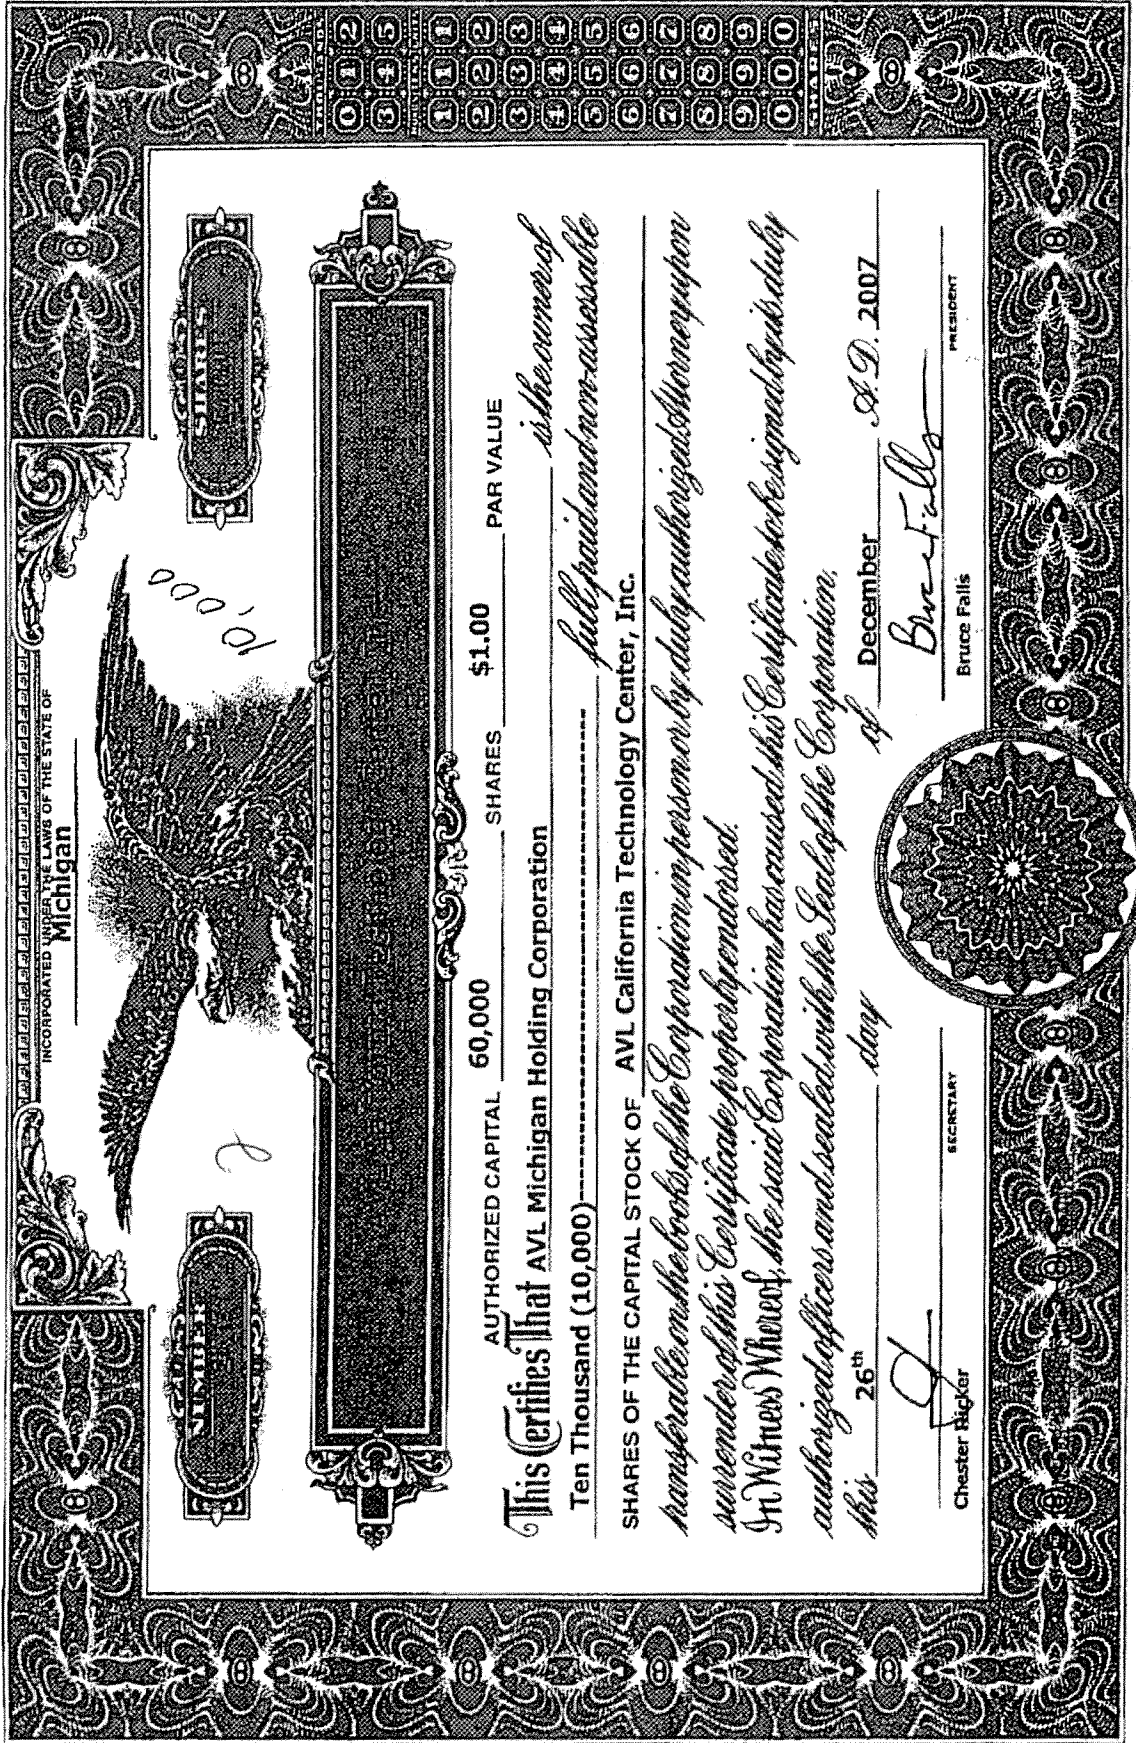 NUMBER
SHARES
INCORPORATED UNDER THE LAWS OF THE STATE OF
Michigan
10,000
AUTHORIZED CAPITAL 60,000 SHARES $1.00 PAR VALUE
This Certifies That AVL Michigan Holding Corporation is the owner of
Ten Thousand (10,000)------------------------------------ fully paid and non-assessable
SHARES OF THE CAPITAL STOCK OF AVL California Technology Center, Inc.
transferable on the books of the Corporation in person or by duly authorized Attorney upon
surrender of this Certificate properly endorsed.
In Witness Whereof, the said Corporation has caused this Certificate to be signed by its duly
authorized officers and sealed with the Seal of the Corporation.
this 26th day of December A.D. 2007
Bruce Falls
Chester Ricker Bruce Falls
SECRETARY PRESIDENT
THOUSANDS
0 1 2
3 4 5
HUNDREDS
1 1 1
2 2 2
3 3 3
4 4 4
5 5 5
6 6 6
7 7 7
8 8 8
9 9 9
0 0 0
SHARES